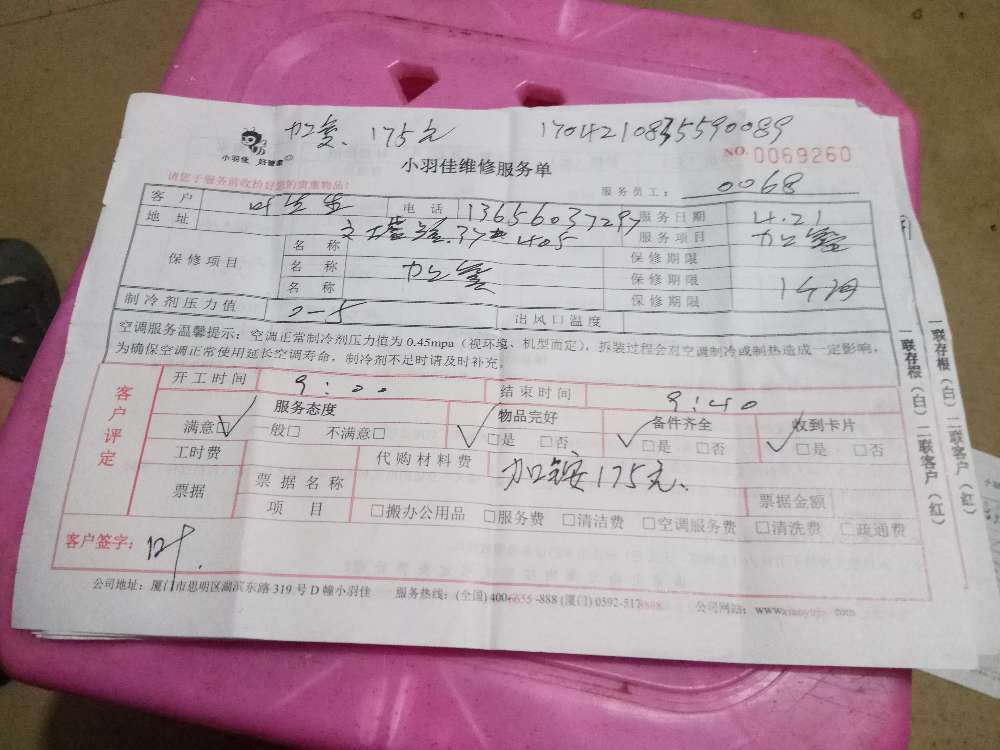 175元 1704210835590089
小羽佳 好管家
小羽佳维修服务单 NO. 0069260
请您于服务前收捡好您的贵重物品！ 服务员工： 0068
客户 叶先生 电话 13656037297 服务日期 4.21
地址 37 405 服务项目
保修项目 名称 保修期限
名称 保修期限
名称 保修期限
制冷剂压力值 出风口温度
空调服务温馨提示：空调正常制冷剂压力值为 0.45mpa（视环境、机型而定），拆装过程会对空调制冷或制热造成一定影响，
为确保空调正常使用延长空调寿命，制冷剂不足时请及时补充。
客户评定 开工时间 9:00 结束时间 9:40
服务态度 物品完好 备件齐全 收到卡片
满意□ 一般□ 不满意□ □是 □否 □是 □否 □是 □否
工时费 代购材料费 175元
票据 票据名称 票据金额
项目 □搬办公用品 □服务费 □清洁费 □空调服务费 □清洗费 □疏通费
客户签字： 叶
公司地址：厦门市思明区湖滨东路 319 号 D 幢小羽佳 服务热线：(全国) 400-6655-888 (厦门) 0592-5178888 公司网站：
一联存根（白）二联客户（红）
一联存根（白）二联客户（红）